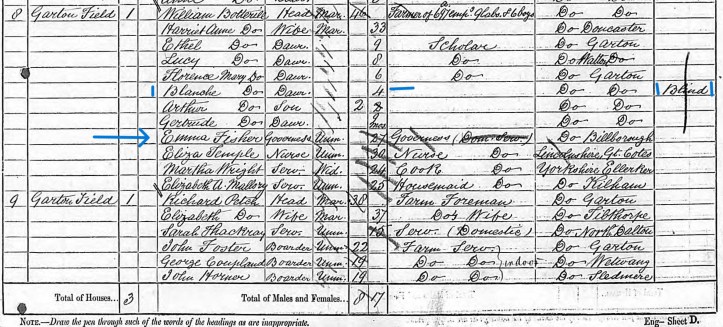 8 Garton Field 1 William Botterill Head Mar. 46 Farmer of Do Do
Harriet Anne Do Wife Mar. 33 Do Doncaster
Ethel Do Daur. 9 Scholar Do Garton
Lucy Do Daur. 8 Do Do Do
Florence Mary Do Daur. 6 Do Do Garton
Blanche Do Daur. 4 Do Do Blind
Arthur Do Son 2 Do Do
Gertrude Do Daur. 9 mos Do Do
Emma Fisher Governess Unm. 27 Governess (Dom. Serv.) Do Billborough
Eliza Temple Nurse Unm. 30 Nurse Do Lincolnshire Gt. Cotes
Martha Wright Serv. Wid. 24 Cook Do Yorkshire Ellerker
Elizabeth A. Mallory Serv. Unm. 25 Housemaid Do Do Kilham
9 Garton Field 1 Richard Petch Head Mar. 38 Farm Foreman Do Garton
Elizabeth Do Wife Mar. 37 Do's Wife Do Tibthorpe
Sarah Thackray Serv. Unm. 15 Serv. (Domestic) Do North Dalton
John Foster Boarder Unm. 22 Farm Serv. Do Garton
George Coupland Boarder Unm. 19 Do Do indoor Do Wetwang
John Horner Boarder Unm. 19 Do Do Do Sledmere
Total of Houses... 3 Total of Males and Females... 8 17
NOTE.—Draw the pen through such of the words of the headings as are inappropriate. Eng— Sheet D.